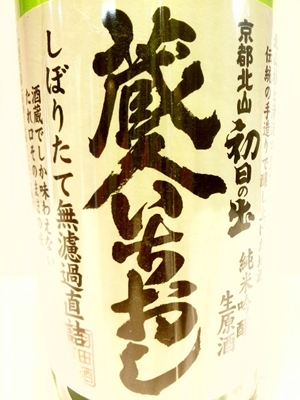 伝統の手造りで醸し
京都北山
初日の出
純米吟醸
生原酒
蔵人いちおし
しぼりたて無濾過直詰
酒蔵でしか味わえない
たれ口そのまま